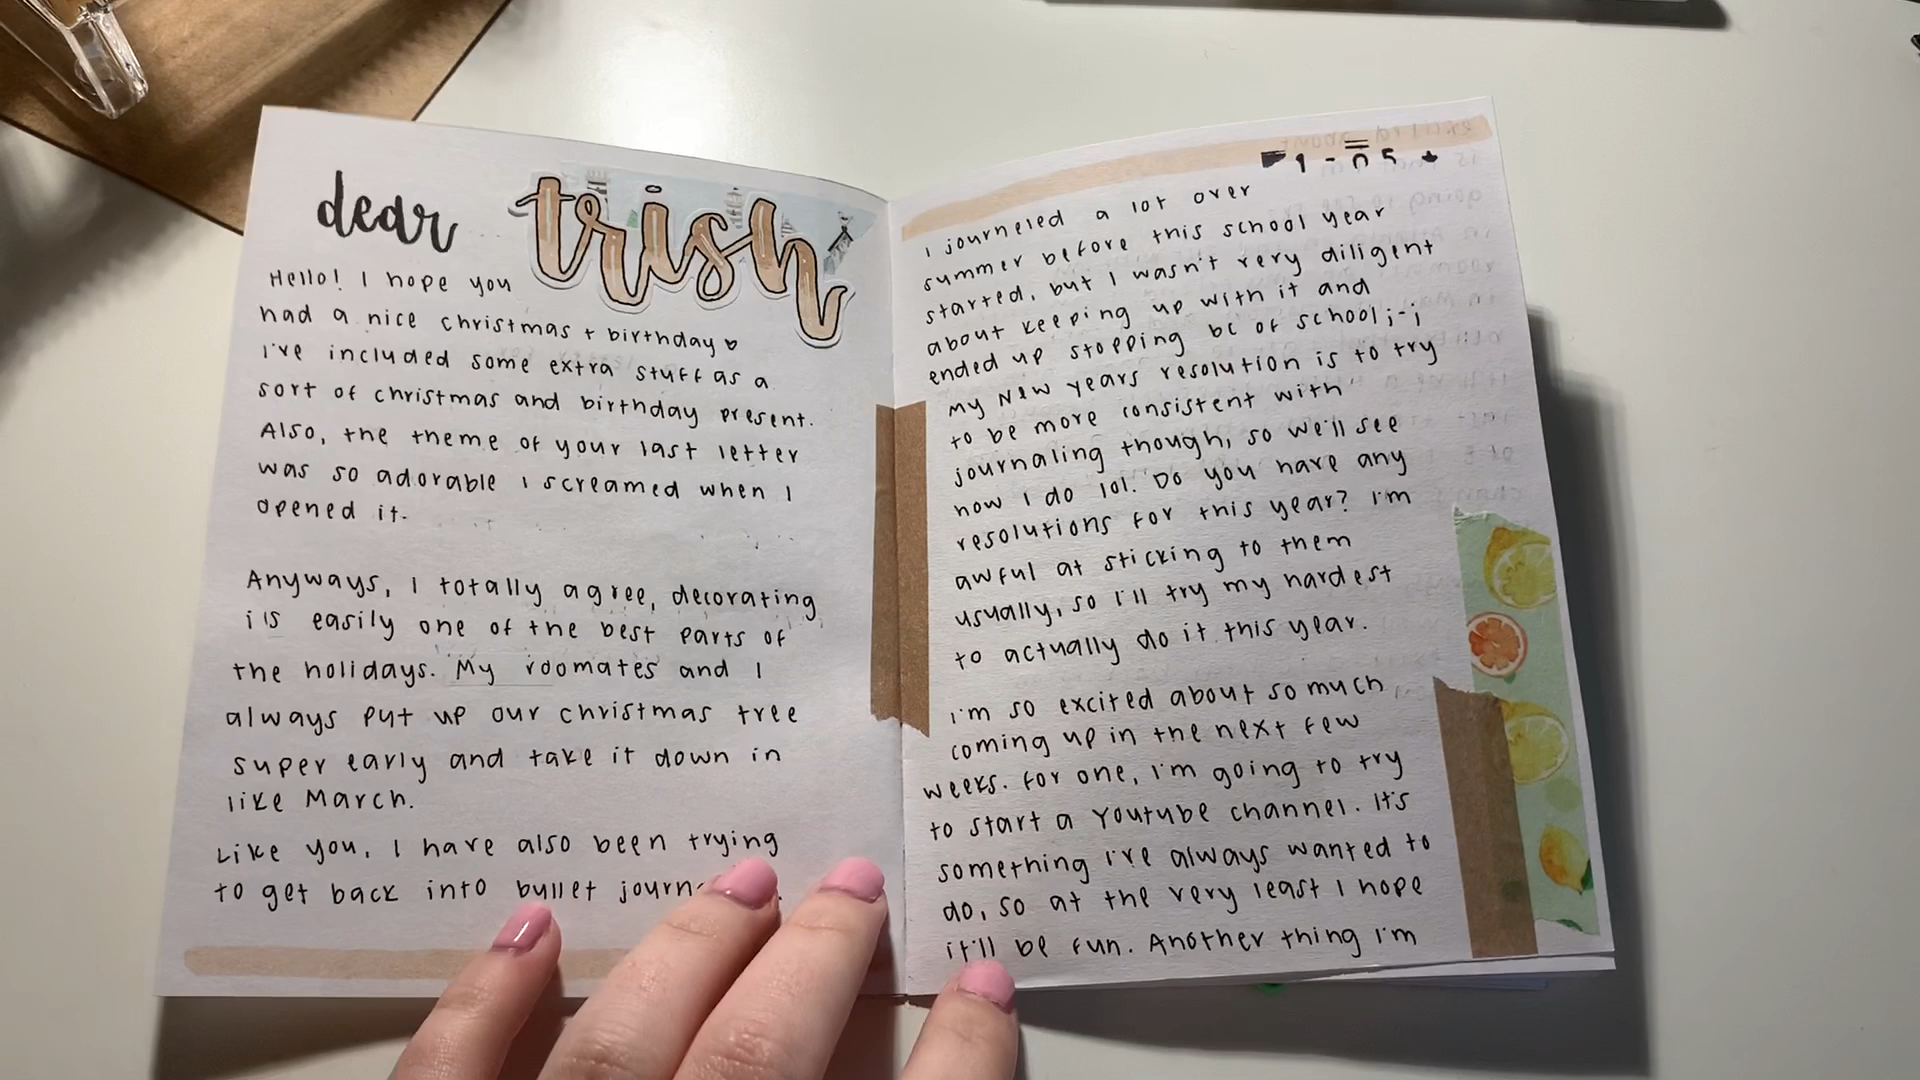 dear trish
Hello! I hope you
had a nice christmas + birthday ♡
I've included some extra stuff as a
sort of christmas and birthday present.
Also, the theme of your last letter
was so adorable I screamed when I
opened it.
Anyways, I totally agree, decorating
is easily one of the best parts of
the holidays. My roomates and I
always put up our christmas tree
super early and take it down in
like March.
Like you, I have also been trying
to get back into bullet
I journeled a lot over
summer before this school year
started, but I wasn't very diligent
about keeping up with it and
ended up stopping bc of school ;-;
My New years resolution is to try
to be more consistent with
journaling though, so we'll see
how I do lol. Do you have any
resolutions for this year? I'm
awful at sticking to them
usually, so I'll try my hardest
to actually do it this year.
I'm so excited about so much
coming up in the next few
weeks. For one, I'm going to try
to start a Youtube channel. It's
something I've always wanted to
do, so at the very least I hope
it'll be fun. Another thing I'm